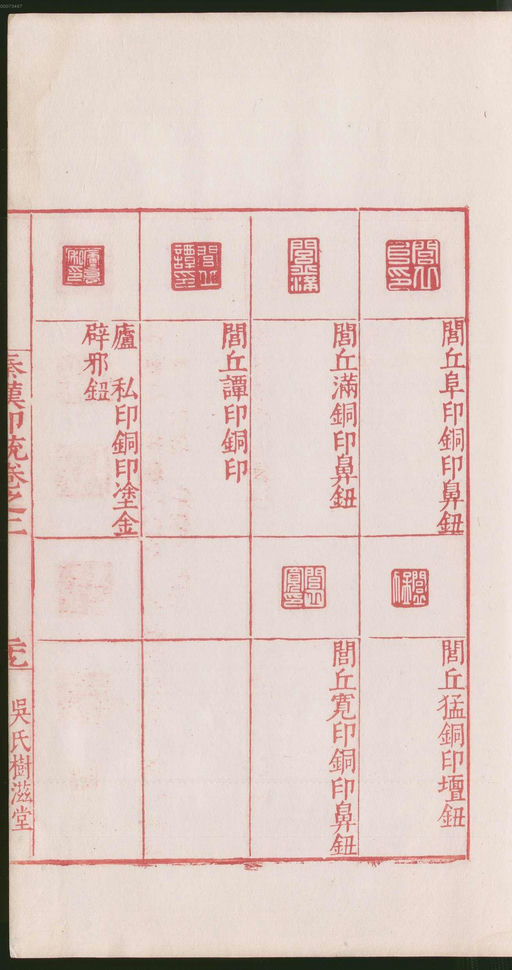 閭丘阜印銅印鼻鈕
閭丘猛銅印壇鈕
閭丘滿銅印鼻鈕
閭丘寛印銅印鼻鈕
閭丘譚印銅印
廬 私印銅印塗金
辟邪鈕
秦漢印統卷之三
吳氏樹滋堂
00073467